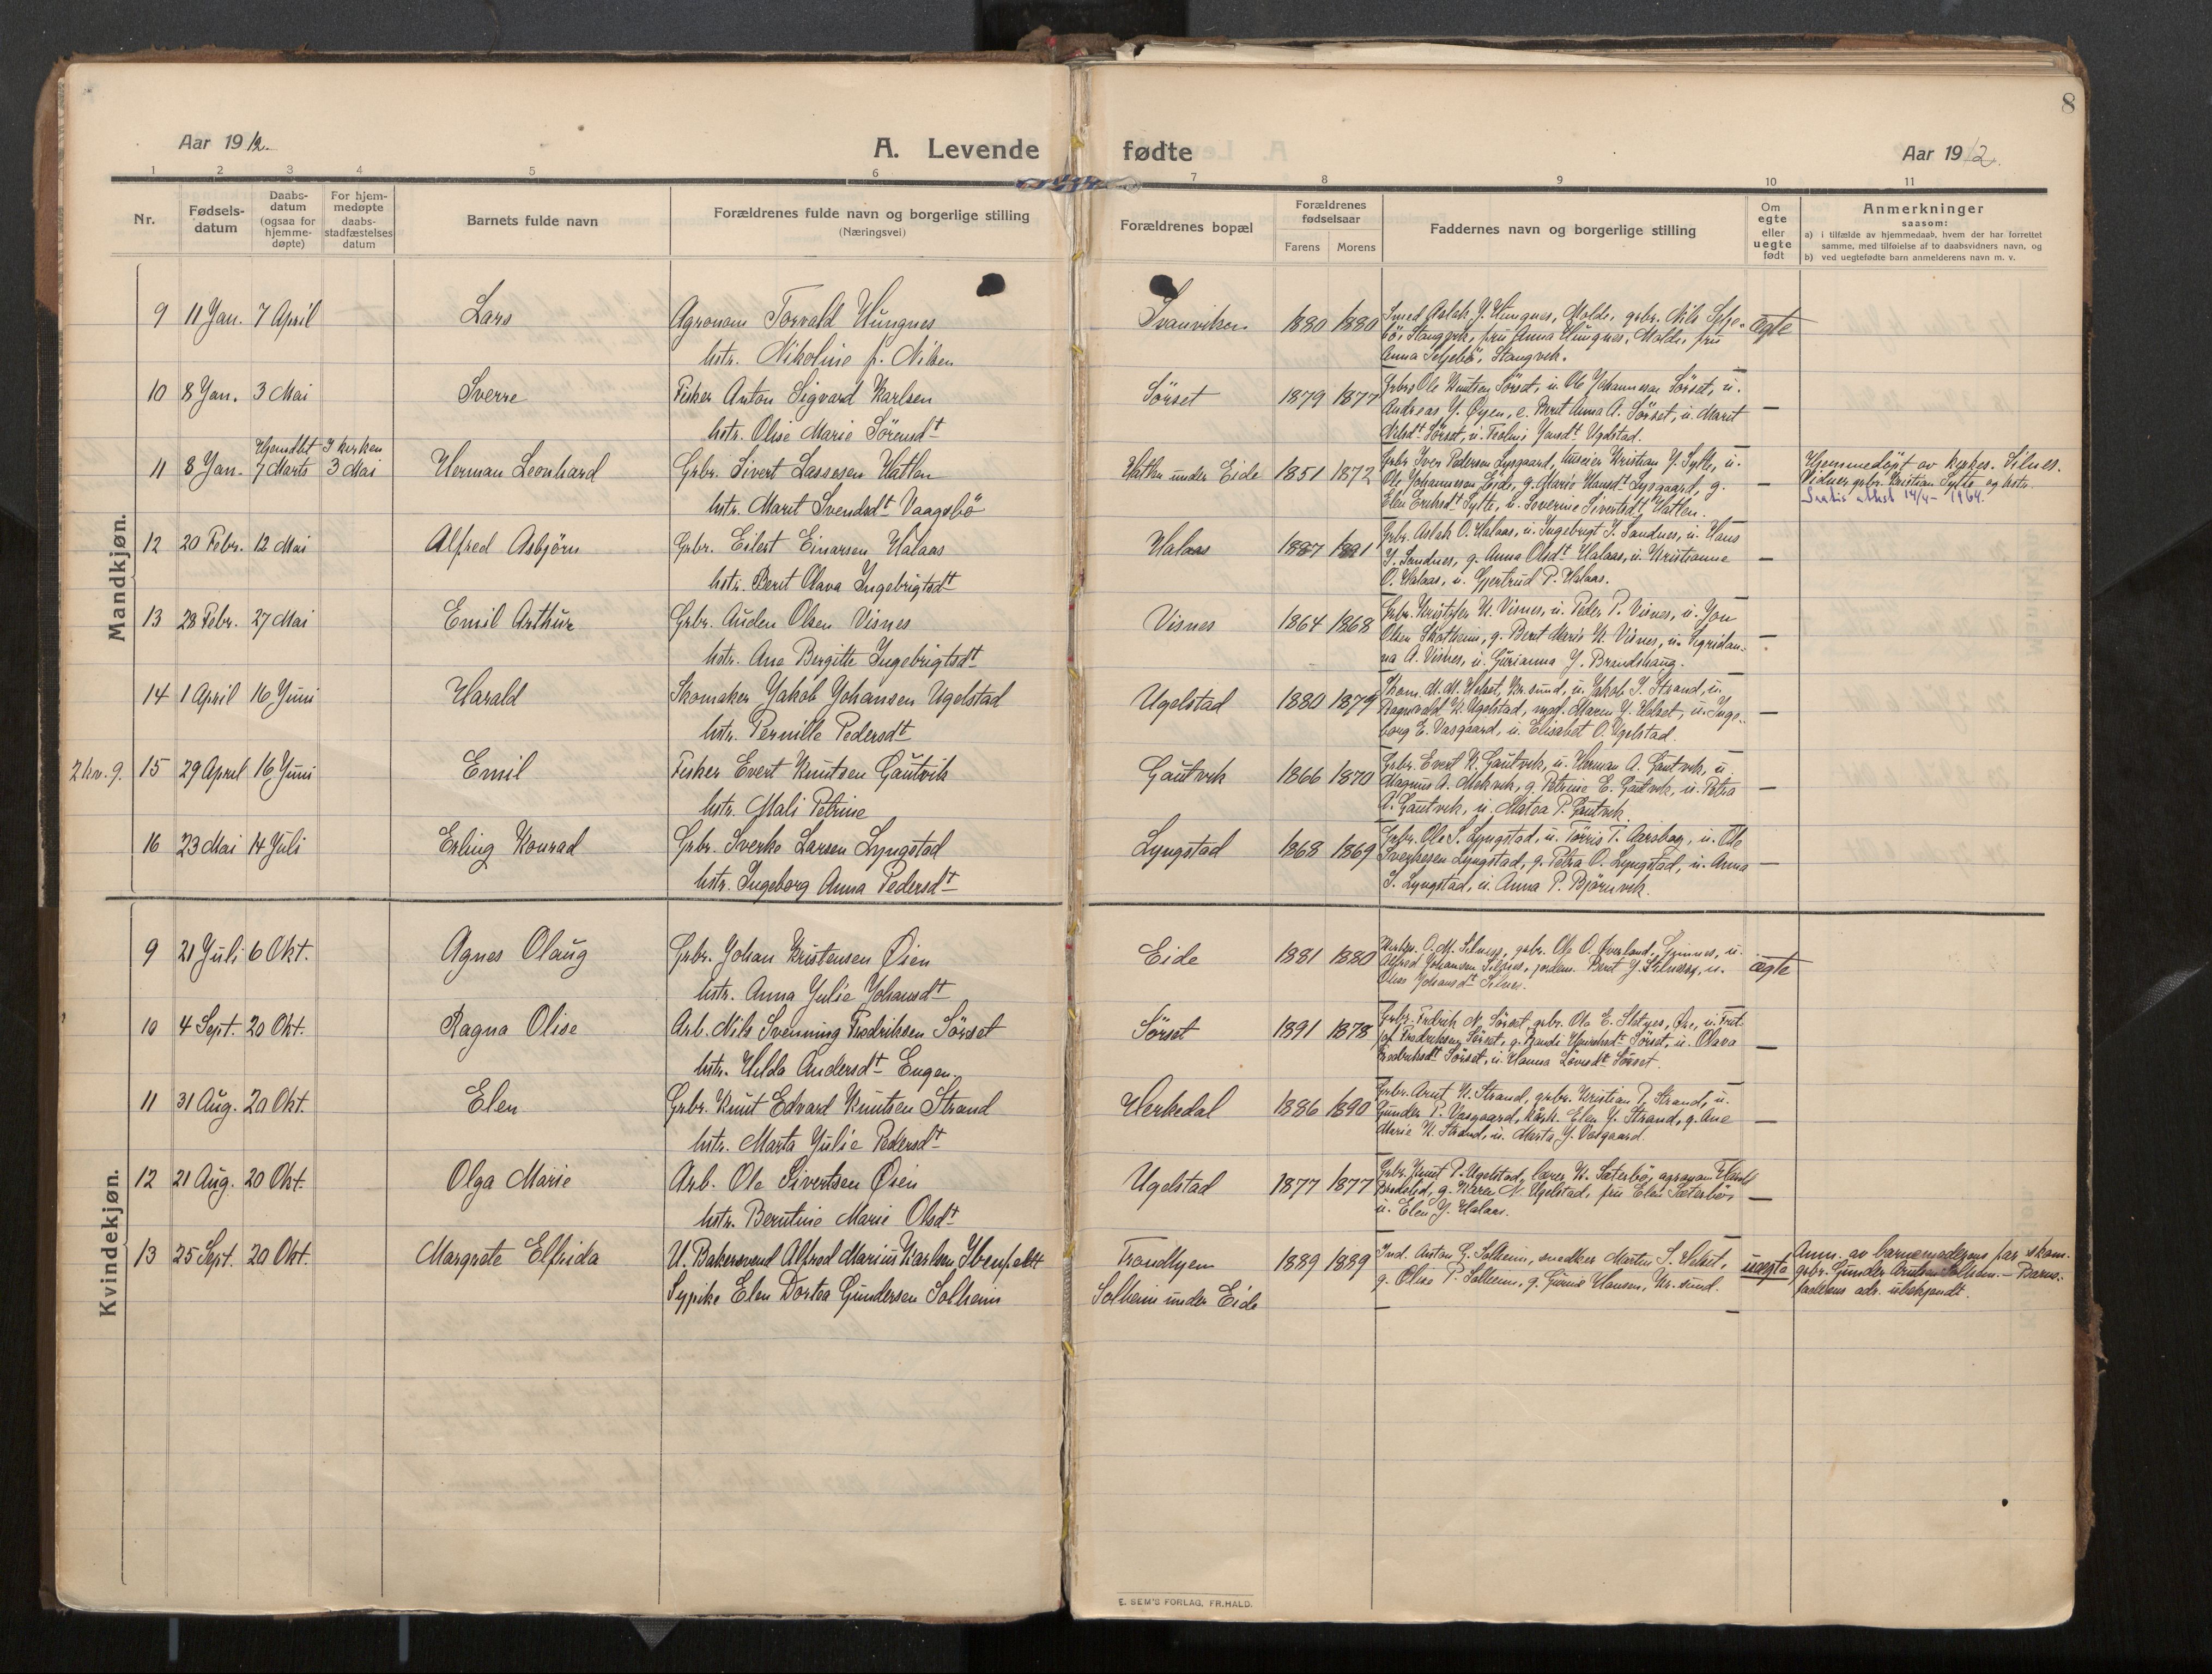 8
Aar 1912.
A. Levende fødte
Aar 1912.
1 2 3 4 5 6 7 8 9 10 11
Nr.
Fødsels-
datum
Daabs-
datum
(ogsaa for
hjemme-
døpte)
For hjem-
medøpte
daabs-
stadfæstelses
datum
Barnets fulde navn
Forældrenes fulde navn og borgerlige stilling
(Næringsvei)
Forældrenes bopæl
Forældrenes
fødselsaar
Farens Morens
Faddernes navn og borgerlige stilling
Om
egte
eller
uegte
født
Anmerkninger
saasom:
a) i tilfælde av hjemmedaab, hvem der har forrettet
samme, med tilføielse af to daabsvidners navn, og
b) ved uegtefødte barn anmelderens navn m. v.
Mandkjøn.
9 11 Jan. 7 April Lars Agronom Torvald Hungnes
hstr. Nikoline f. Nilsen
Svanviken 1880 1880 Smed Aslak J. Hungnes, Molde, grbr. Nils Selje-
bö, Stangvik, fru Anna Hungnes, Molde, fru
Anna Seljebö, Stangvik.
ægte
10 8 Jan. 3 Mai Sverre Fisker Anton Sigvard Karlsen
hstr. Olise Marie Sörensdt
Sörset 1879 1877 Grbr. Ole Knutsen Sörset, u. Ole Johannesen Sörset, u.
Andreas J. Øyen, e. Berit Anna A. Sörset, u. Marit
Nilsdt Sörset, u. Jansdt Ugelstad.
—
Hjemdbt I kirken
11 8 Jan. 7 Marts 3 Mai Herman Leonhard Grbr. Sivert Lassesen Hatlen
hstr. Marit Svendsdt Vaagsbö
Hatlen under Eide 1851 1872 Grbr. Iver Pedersen Lysgaard, Kristian J. Sylte, u.
Ole Johannesen Eide, g. Marie Hansdt Lysgaard, g.
Elen Eriksdt Sylte, u. Severine Sivertsdt Hatlen.
Hjemmedöpt av kirkes. Silnes.
Vidner grbr. Kristian Sylte og hstr.
Gratis attest 14/4- 1964.
12 20 Febr. 12 Mai Alfred Asbjörn Grbr. Eilert Einarsen Halaas
hstr. Berit Olava Ingebrigtsdt
Halaas 1887 1891 Grbr. Aslak O. Halaas, u. Ingebrigt J. Sandnes, u. Hans
J. Sandnes, g. Anna Olsdt Halaas, u. Kristianne
O. Halaas, u. Gjertrud P. Halaas.
—
13 28 Febr. 27 Mai Emil Arthur Grbr. Auden Olsen Visnes
hstr. Ane Bergitte Ingebrigtsdt
Visnes 1864 1868 Grbr. Kristofer K. Visnes, u. Peder P. Visnes, u. Jon
Olsen Skotheim, g. Berit Marie K. Visnes, u. Ingridan-
na A. Visnes, u. Gurianna J. Brandshaug.
—
14 1 April 16 Juni Harald Skomaker Jakob Johansen Ugelstad
hstr. Pernille Pedersdt
Ugelstad 1880 1879 Skom. M. M. Helset, Kr.sund, u. Jakob J. Strand, u.
Ragnvald K. Ugelstad, mad. Maren J. Helset, u. Inge-
borg E. Vasgaard, u. Elisabet O. Ugelstad.
—
2 kv. 9. 15 29 April 16 Juni Emil Fisker Evert Knutsen Gautvik
hstr. Mali Petrine
Gautvik 1866 1870 Grbr. Evert K. Gautvik, u. Herman A. Gautvik, u.
Magnus A. Mekvik, g. Petrine E. Gautvik, u. Petra
A. Gautvik, u. Matea P. Gautvik.
—
16 23 Mai 14 Juli Erling Konrad Grbr. Sverke Larsen Lyngstad
hstr. Ingeborg Anna Pedersdt
Lyngstad 1868 1869 Grbr. Ole S. Lyngstad, u. Törris T. Aarsbog, u. Ole
Sverkesen Lyngstad, g. Petra O. Lyngstad, u. Anna
S. Lyngstad, u. Anna P. Björnvik.
—
Kvindekjøn.
9 21 Juli 6 Okt. Agnes Olaug Grbr. Johan Kristensen Øien
hstr. Anna Julie Johansdt
Eide 1881 1880 Kirkes. O. M. Silness, grbr. Ole O. Øverland, u.
Alfred Johansen Silnes, jordm. Beret J. Silness, u.
Johansdt Silnes.
ægte
10 4 Sept. 20 Okt. Ragna Olise Arb. Nils Svenning Fredriksen Sörset
hstr. Hilda Andersdt Eugen
Sörset 1891 1878 Grbr. Fredrik N. Sörset, grbr. Ole E. Øre, u. Frit-
jof Fredriksen Sörset, g. Randi Sörset, u. Olava
Fredriksdt Sörset, u. Hanna Sörset.
—
11 31 Aug. 20 Okt. Elen Grbr. Knut Edvard Knutsen Strand
hstr. Marta Julie Pedersdt
Herkedal 1886 1890 Grbr. Arnt K. Strand, grbr. Kristian P. Strand, u.
Gunder P. Vasgaard, kårk. Elen J. Strand, g. Ane
Marie K. Strand, u. Marta J. Vasgaard.
—
12 21 Aug. 20 Okt. Olga Marie Arb. Ole Sivertsen Øien
hstr. Berntine Marie Olsdt
Ugelstad 1877 1877 Grbr. Knut P. Ugelstad, lærer K. Sæterbö, agronom
g. Karen N. Ugelstad, fru Elen Sæterbö,
u. Elen J. Halaas.
—
13 25 Sept. 20 Okt. Margrete Elfrida U. Bakersvend Alfred Marius Karlsen Ibenfeldt
Sypike Elen Dortea Gundersen Solheim
Trondhjem
Solheim under Eide
1889 1889 Ind. Anton G. Solheim, snedker Martin S. Helset,
g. Olise P. Solheim, g. Hansen, Kr. sund.
uægte
Anm. av barnemoderens far skom.
grbr. Gunder Arntsen Solheim. — Barne-
faderens adr. ubekjendt.
E. SEM'S FORLAG, FR.HALD.